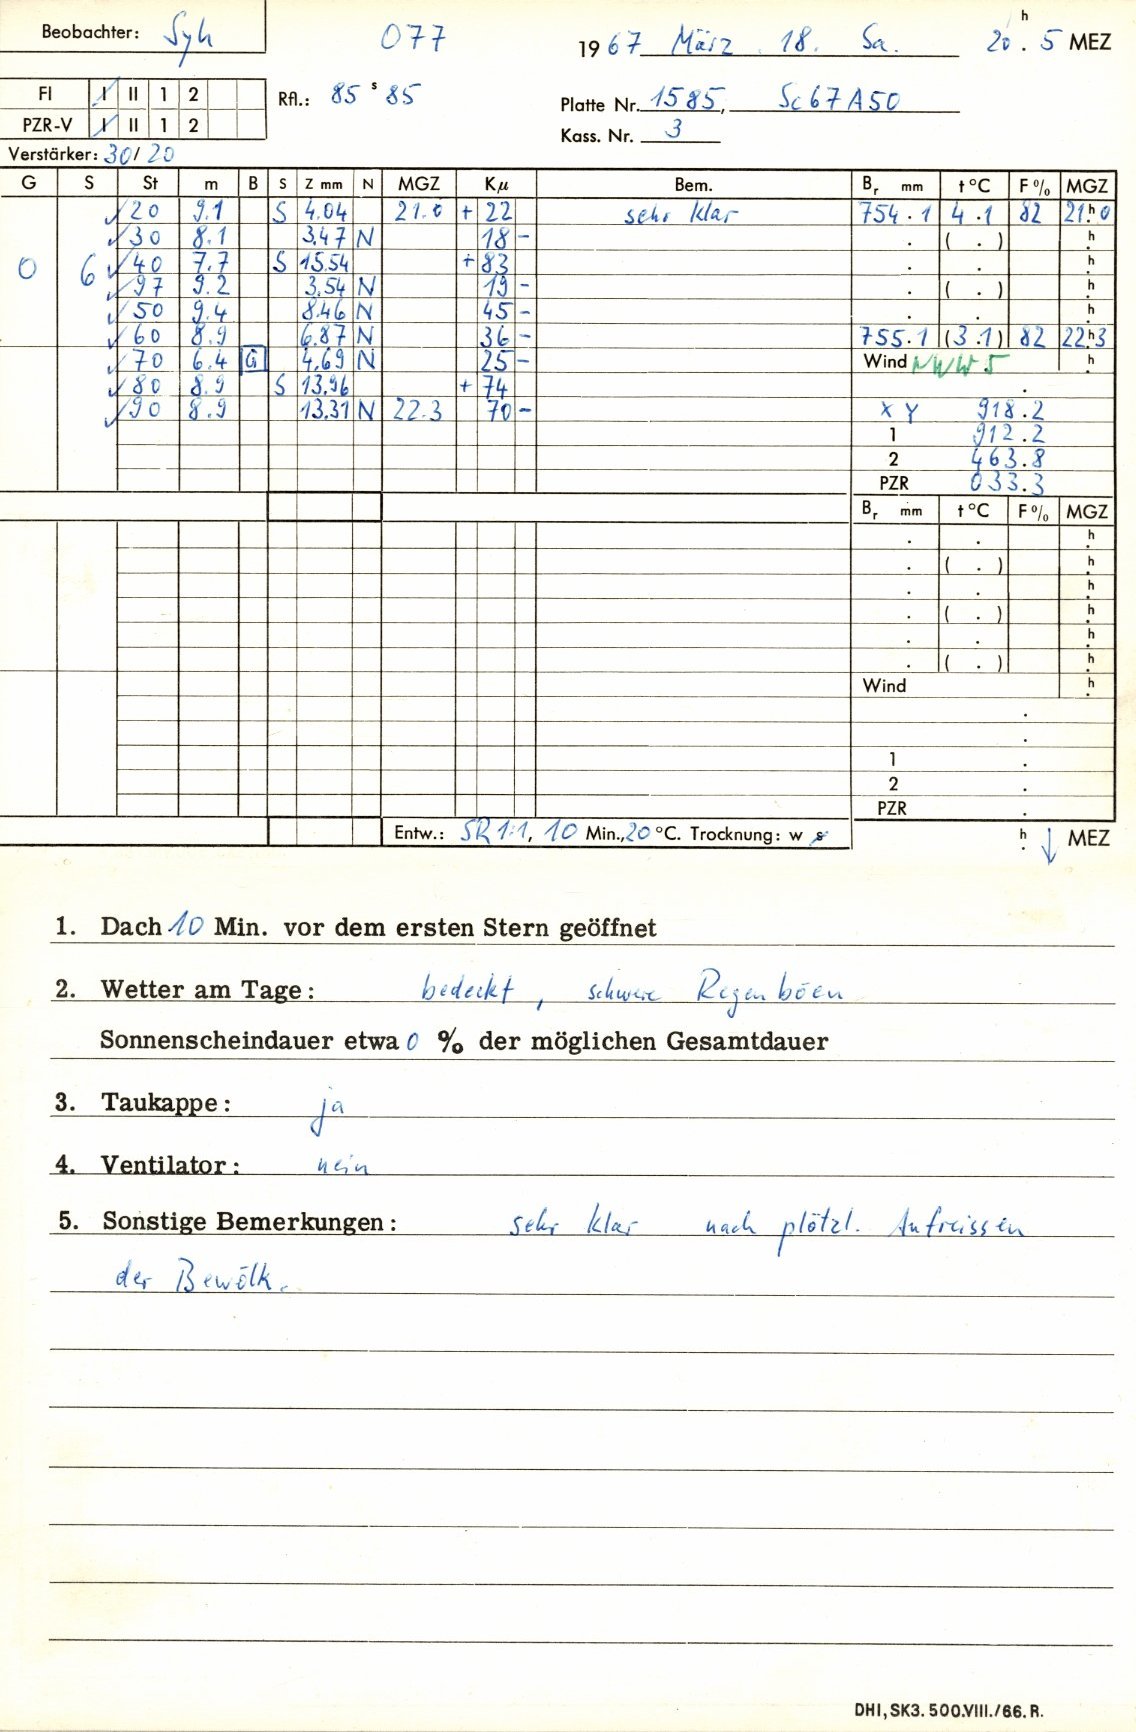 Beobachter: Syh 077 1967 März 18. Sa. 20h.5 MEZ
FI I II 1 2 Rfl.: 85 s 85 Platte Nr. 1585, Sc67A50
PZR-V I II 1 2 Kass. Nr. 3
Verstärker: 30/20
G S St m B S Z mm N MGZ Kμ Bem. Br mm t°C F% MGZ
20 9.1 S 4.04 21.0 + 22 sehr klar 754.1 4.1 82 21h0
30 8.1 3.47 N 18 - . ( . ) h
0 6 40 7.7 S 15.54 + 83 . . h
97 9.2 3.54 N 19 - . ( . ) h
50 9.4 8.46 N 45 - . . h
60 8.9 6.87 N 36 - 755.1 (3.1) 82 22h3
70 6.4 G 4.69 N 25 - Wind NWW 5 h
80 8.9 S 13.96 + 74 .
90 8.9 13.31 N 22.3 70 - X Y 918.2
1 912.2
2 463.8
PZR 033.3
Br mm t°C F% MGZ
. . h
. ( . ) h
. . h
. ( . ) h
. . h
. ( . ) h
Wind h
.
.
1 .
2 .
PZR .
Entw.: SR 1:1, 10 Min., 20 °C. Trocknung: w s h. ↓ MEZ
1. Dach 10 Min. vor dem ersten Stern geöffnet
2. Wetter am Tage: bedeckt, schwere Regenböen
Sonnenscheindauer etwa 0 % der möglichen Gesamtdauer
3. Taukappe: ja
4. Ventilator: nein
5. Sonstige Bemerkungen: sehr klar nach plötzl. Aufreissen
der Bewölk.
DHI, SK3. 500.VIII./66. R.